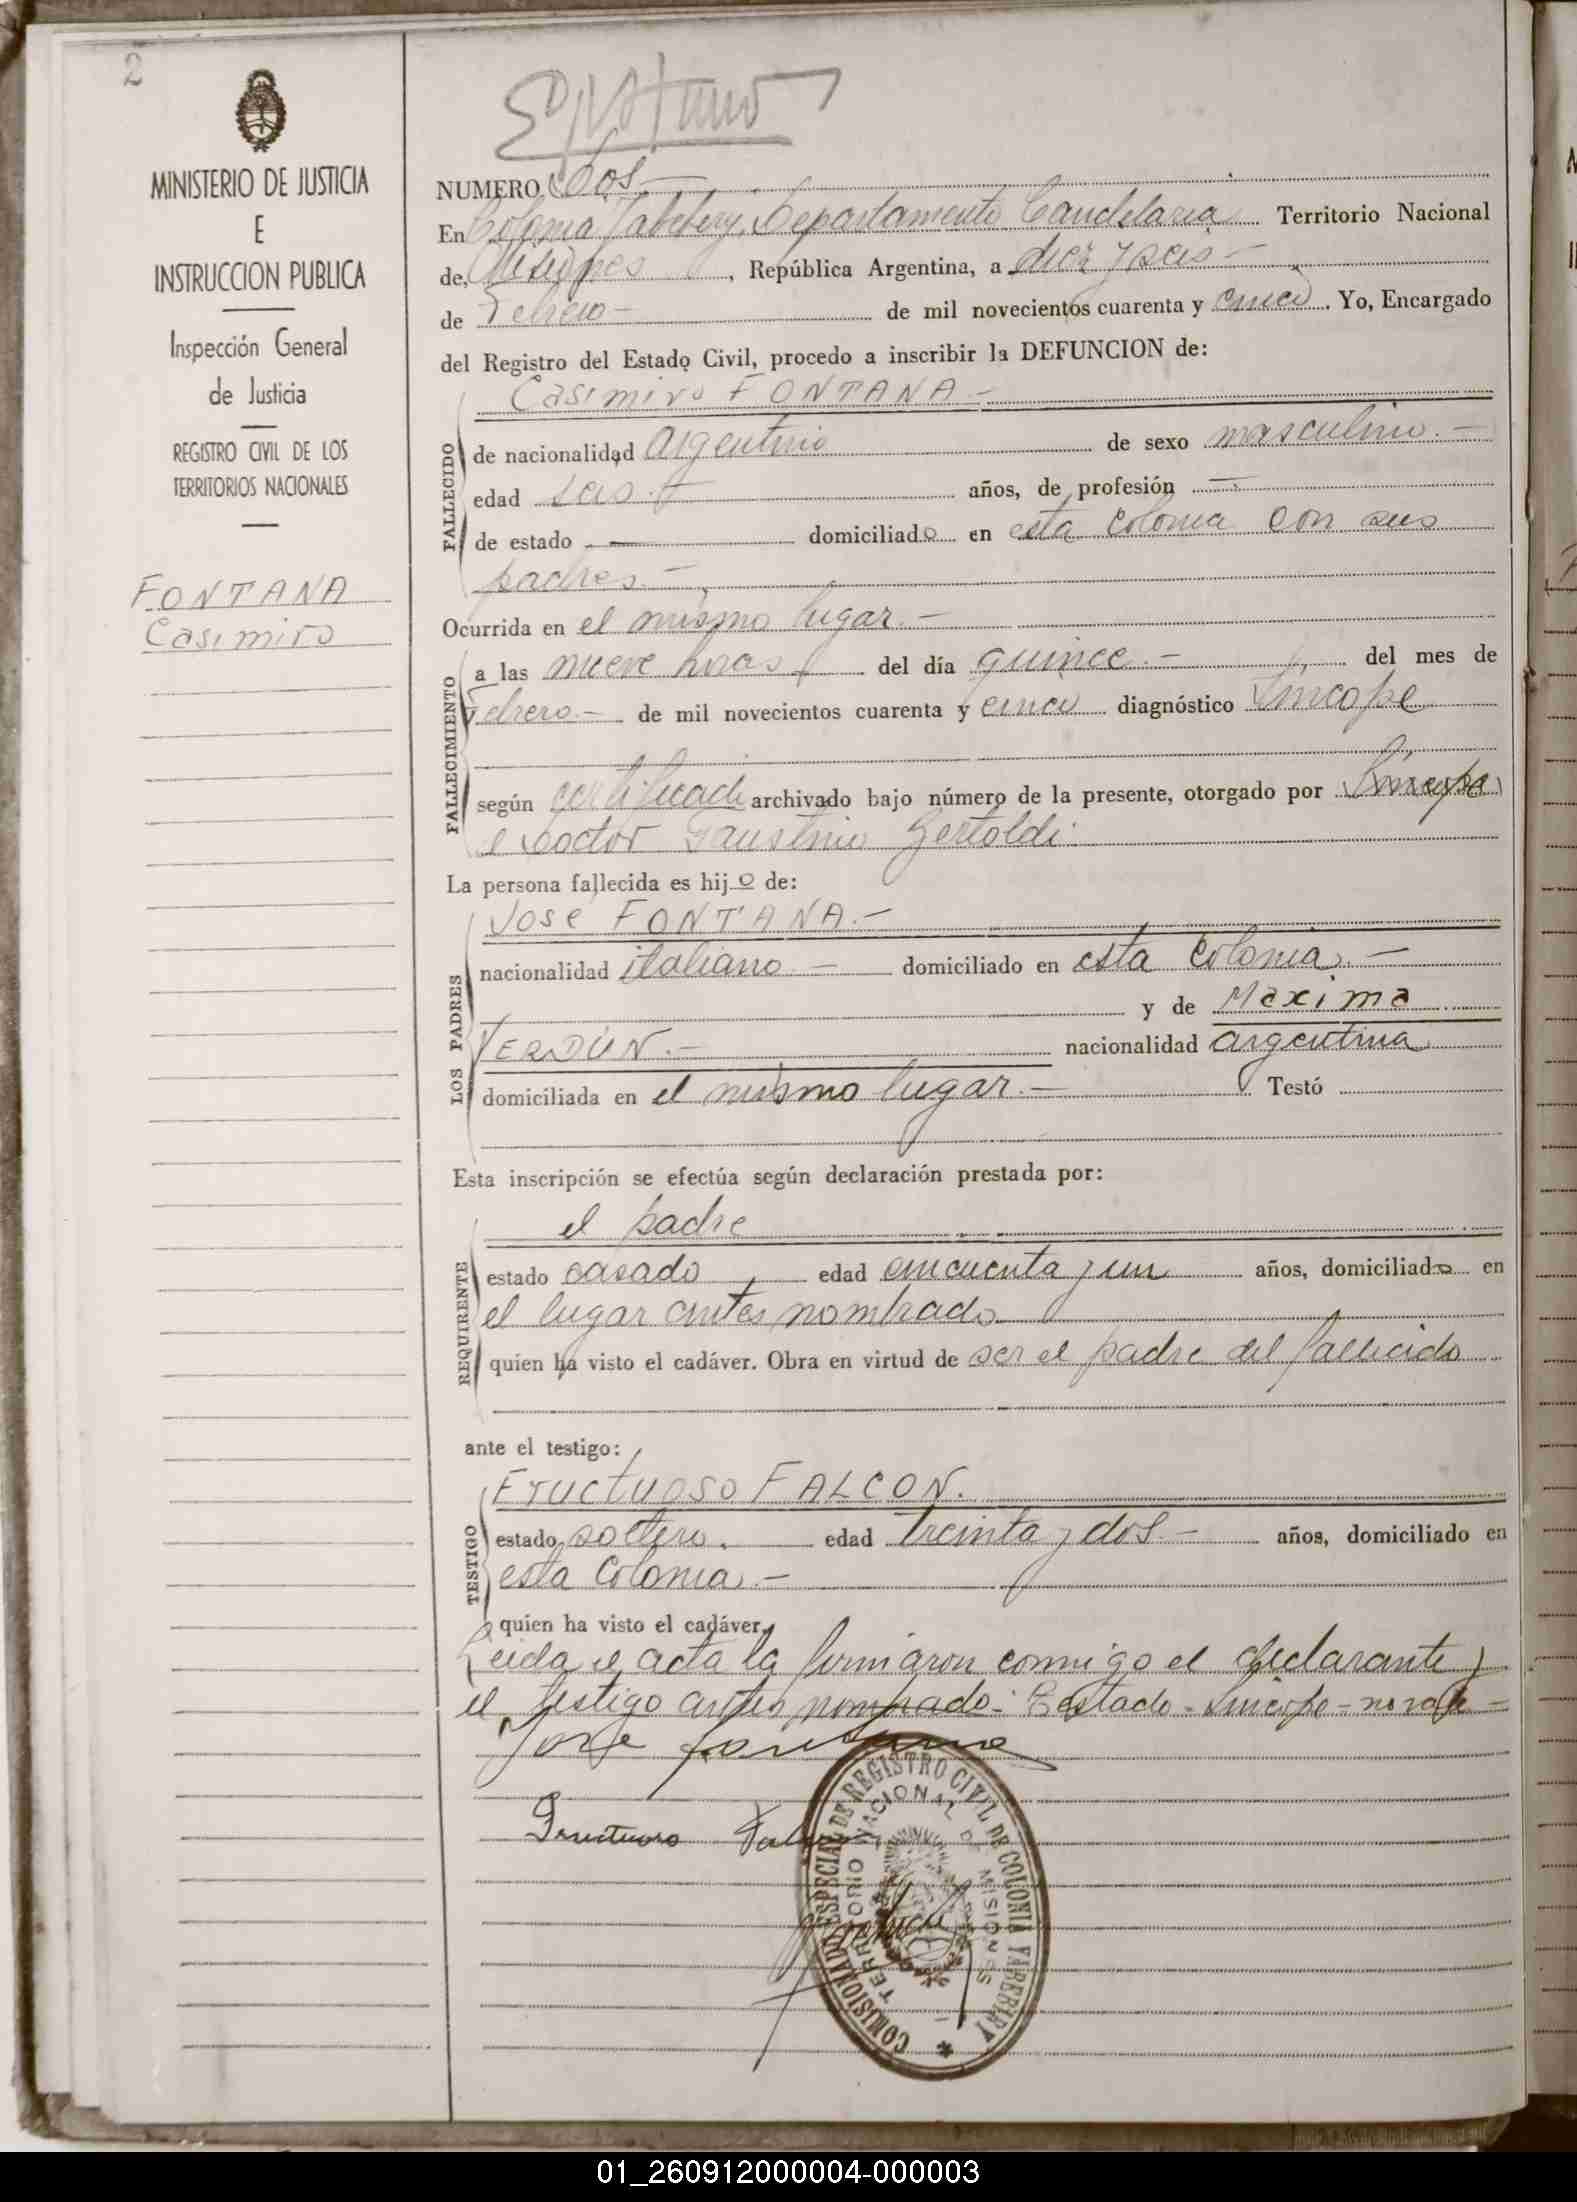 2
MINISTERIO DE JUSTICIA
E
INSTRUCCION PUBLICA
Inspección General
de Justicia
REGISTRO CIVIL DE LOS
TERRITORIOS NACIONALES
FONTANA
Casimiro
NUMERO Dos -
En Colonia Yabebiry, Departamento Candelaria Territorio Nacional
de, Misiones, República Argentina, a diez y seis -
de Febrero - de mil novecientos cuarenta y cinco. Yo, Encargado
del Registro del Estado Civil, procedo a inscribir la DEFUNCION de:
Casimiro FONTANA -
FALLECIDO
de nacionalidad argentino de sexo masculino. -
edad seis. - años, de profesión -
de estado - domiciliado en esta colonia con sus
padres. -
Ocurrida en el mismo lugar. -
FALLECIMIENTO
a las nueve horas del día quince. - del mes de
Febrero. - de mil novecientos cuarenta y cinco diagnóstico Síncope
según certificado archivado bajo número de la presente, otorgado por Síncope
el Doctor Faustino Bertoldi.
La persona fallecida es hijo de:
LOS PADRES
José FONTANA. -
nacionalidad italiano - domiciliado en esta Colonia. -
y de Maxima
VERDÚN. - nacionalidad argentina
domiciliada en el mismo lugar. - Testó
Esta inscripción se efectúa según declaración prestada por:
REQUIRENTE
el padre
estado casado, edad cincuenta y un años, domiciliado en
el lugar antes nombrado
quien ha visto el cadáver. Obra en virtud de ser el padre del fallecido
ante el testigo:
TESTIGO
Fructuoso FALCON.
estado soltero. edad treinta y dos. - años, domiciliado en
esta Colonia. -
quien ha visto el cadáver.
Leida el acta la firmaron conmigo el declarante y
el testigo antes nombrado - Testado - Síncope - no vale -
Jose fontana
Fructuoso Falcon
COMISIONADO ESPECIAL DE REGISTRO CIVIL DE COLONIA YABEBIRY
TERRITORIO NACIONAL DE MISIONES
01_260912000004-000003